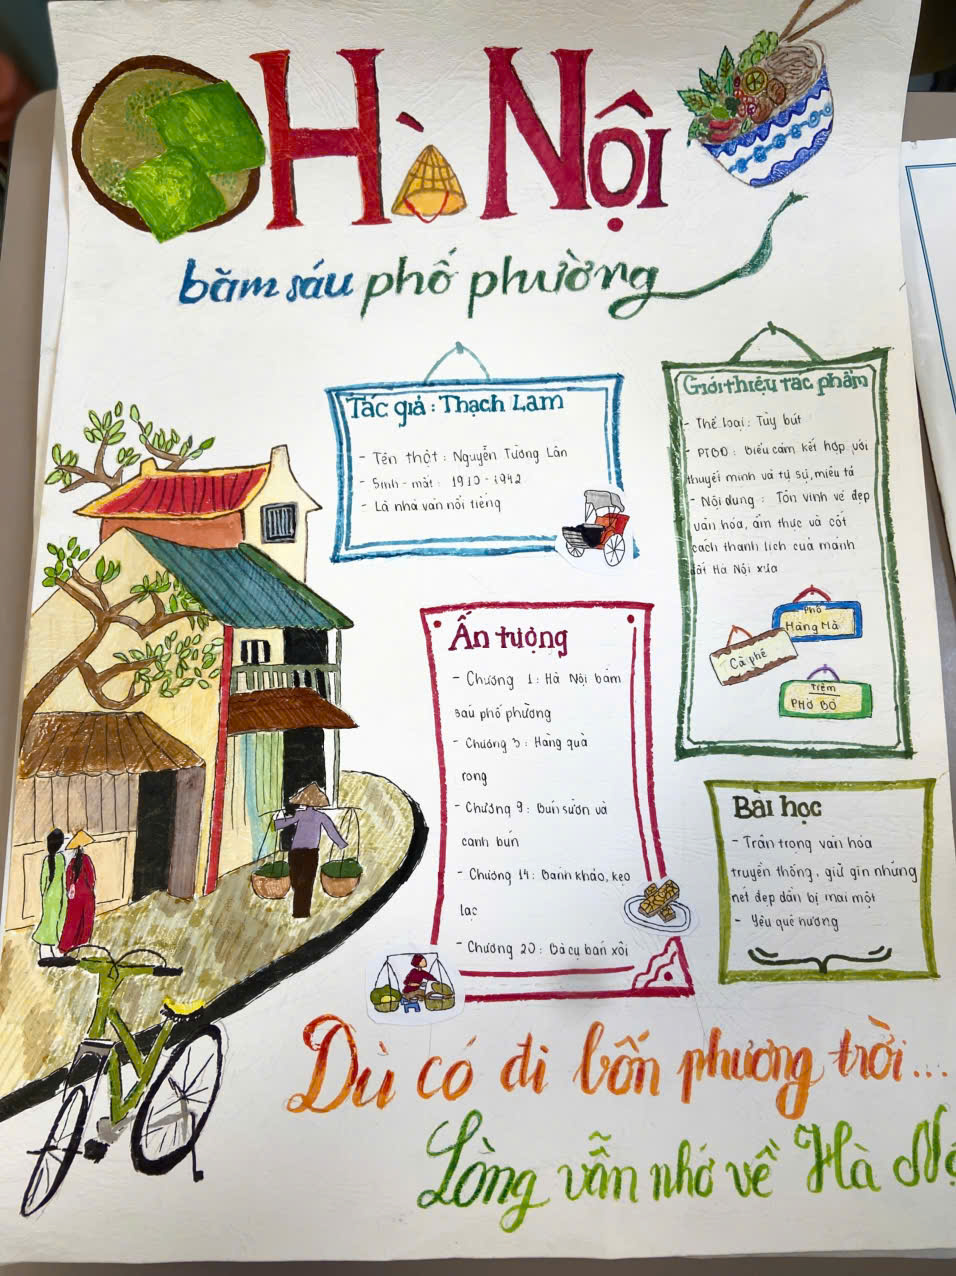 Hà Nội
băm sáu phố phường
Tác giả : Thạch Lam
- Tên thật : Nguyễn Tường Lân
- Sinh - mất : 1910 - 1942
- Là nhà văn nổi tiếng
Giới thiệu tác phẩm
- Thể loại : Tùy bút
- PTBĐ : Biểu cảm kết hợp với
thuyết minh và tự sự, miêu tả
- Nội dung : Tôn vinh vẻ đẹp
văn hóa, ẩm thực và cốt
cách thanh lịch của mảnh
đất Hà Nội xưa
Phố
Hàng Mã
Cà phê
Tiệm
PHỞ BÒ
Ấn tượng
- Chương 1 : Hà Nội băm
sáu phố phường
- Chương 3 : Hàng quà
rong
- Chương 9 : Bún sườn và
canh bún
- Chương 14 : Bánh khảo, kẹo
lạc
- Chương 20 : Bà cụ bán xôi
Bài học
- Trân trọng văn hóa
truyền thống, giữ gìn những
nét đẹp dần bị mai một
- Yêu quê hương
Dù có đi bốn phương trời...
Lòng vẫn nhớ về Hà Nộ